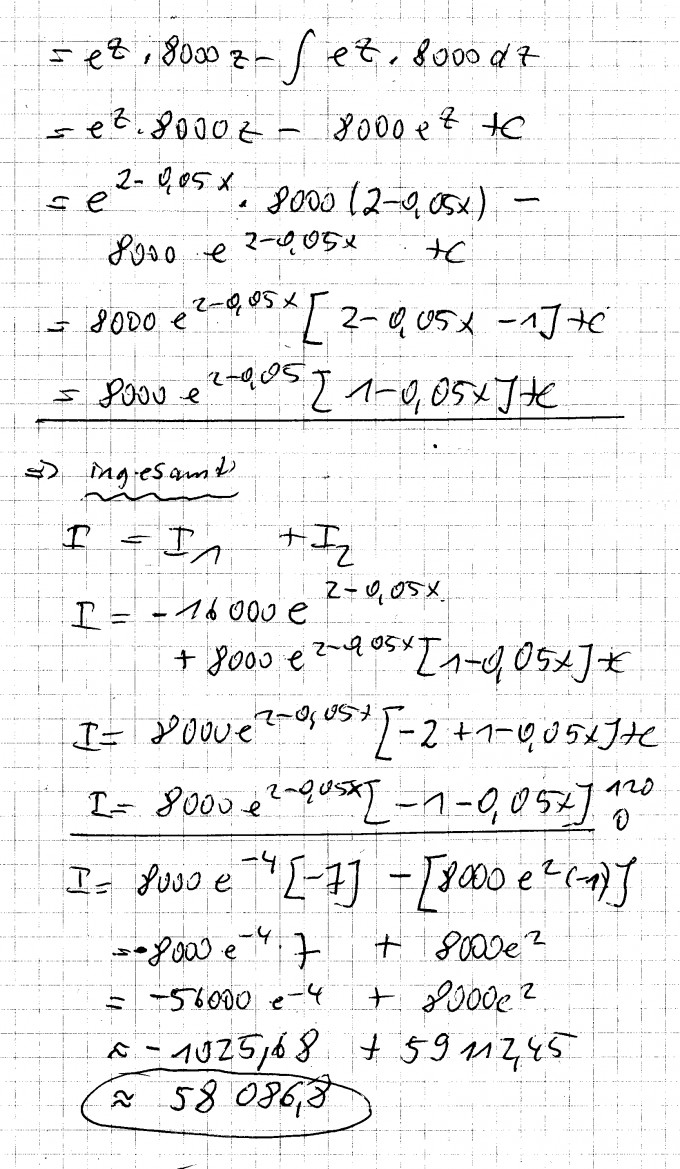 = e^z · 8000 z - ∫ e^z · 8000 dz
= e^z · 8000 z - 8000 e^z + C
= e^{2-0,05x} · 8000 (2-0,05x) -
8000 e^{2-0,05x} + C
= 8000 e^{2-0,05x} [2-0,05x -1] + C
= 8000 e^{2-0,05} [1-0,05x] + C
=> ingesamt
I = I_1 + I_2
I = -16000 e^{2-0,05x}
+ 8000 e^{2-0,05x} [1-0,05x] + C
I = 8000 e^{2-0,05x} [-2+1-0,05x] + C
I = 8000 e^{2-0,05x} [-1-0,05x] ^{120}_{0}
I = 8000 e^{-4} [-7] - [8000 e^2 (-1)]
= -8000 e^{-4} · 7 + 8000 e^2
= -56000 e^{-4} + 8000 e^2
≈ -1025,68 + 59112,45
≈ 58 086,8